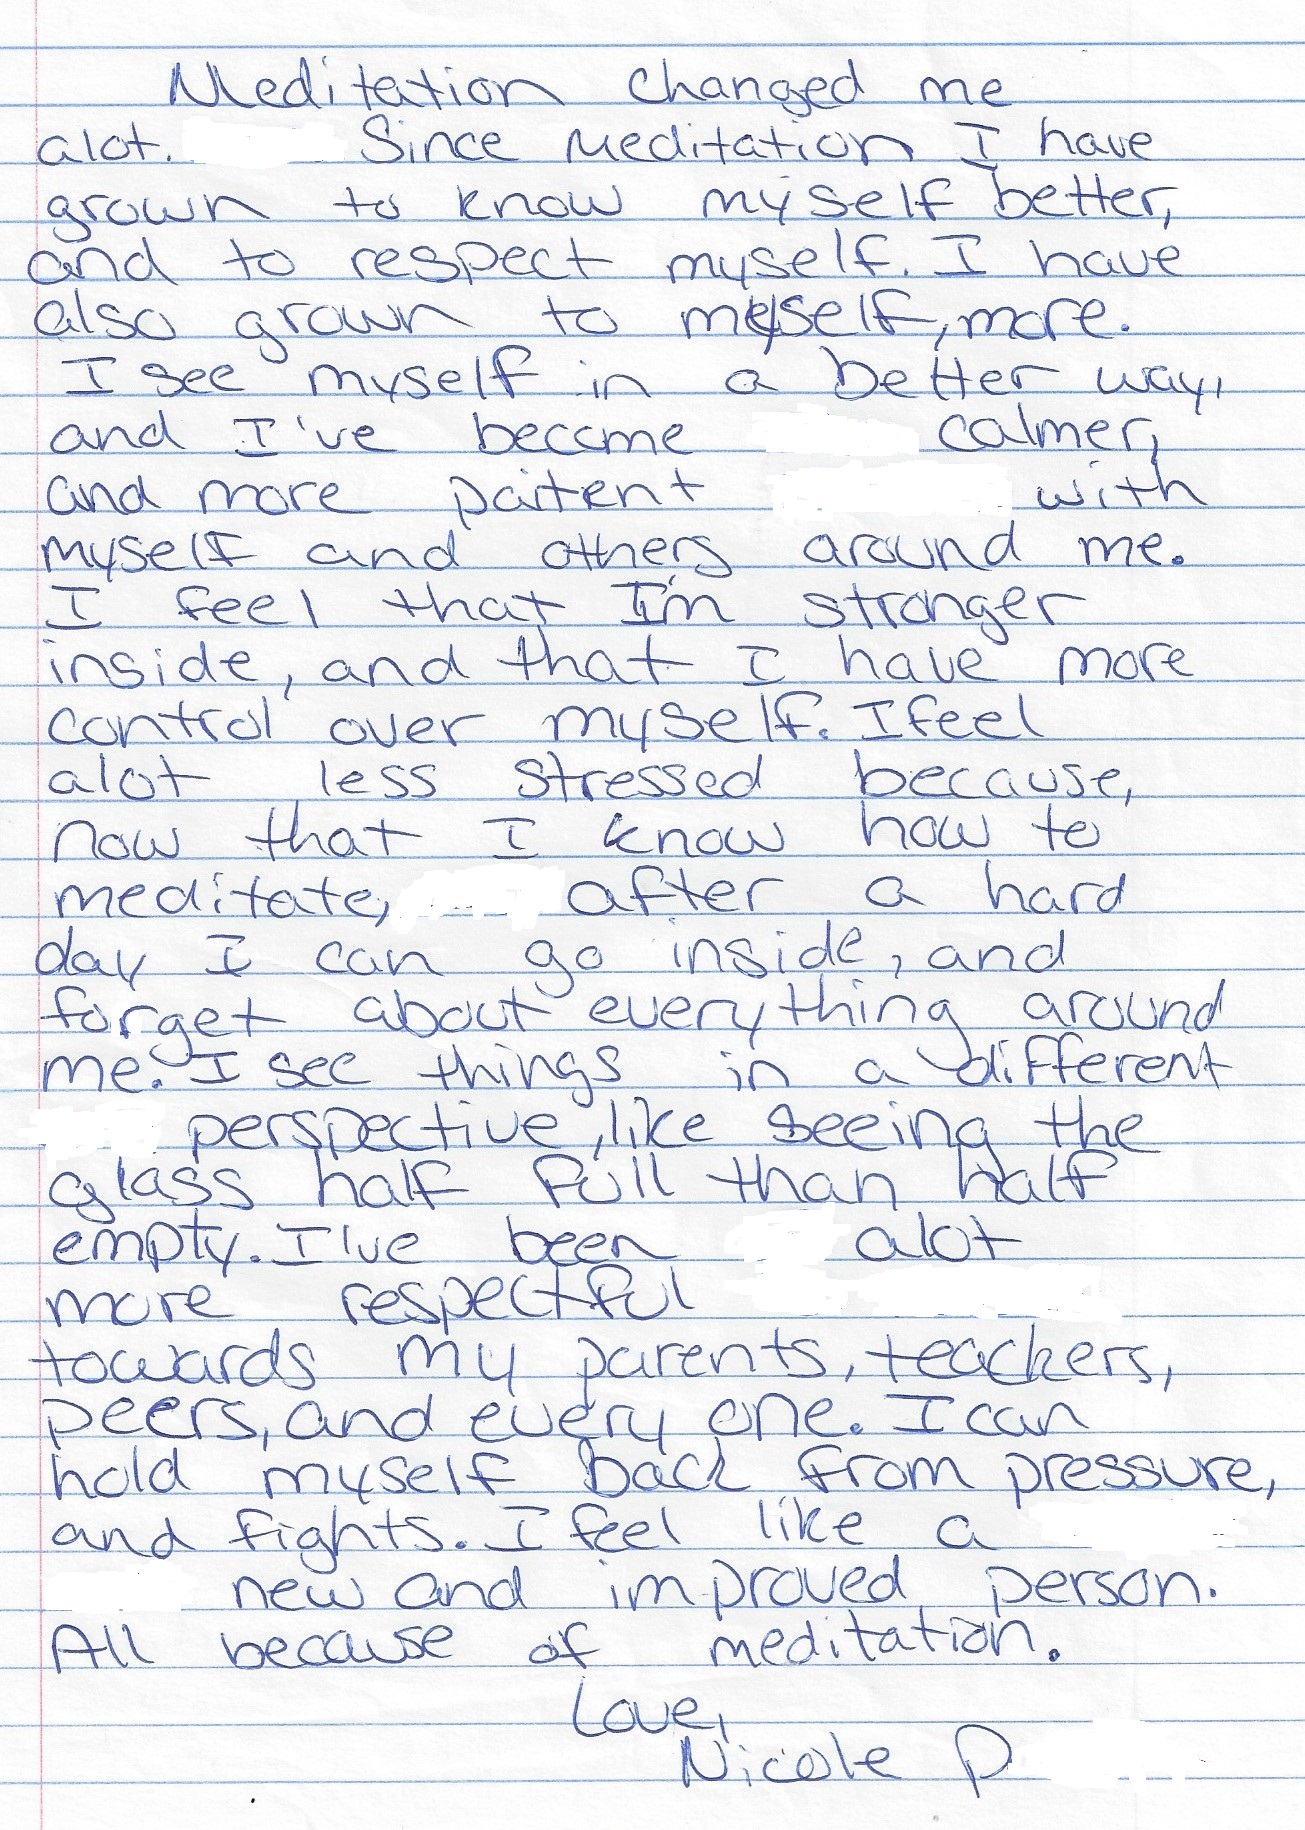 Meditation changed me
alot. Since Meditation I have
grown to know myself better,
and to respect myself. I have
also grown to myself, more.
I see myself in a better way,
and I've become calmer,
and more paitent with
myself and others around me.
I feel that I'm stronger
inside, and that I have more
control over myself. I feel
alot less stressed because,
now that I know how to
meditate, after a hard
day I can go inside, and
forget about everything around
me. I see things in a different
perspective, like seeing the
glass half full than half
empty. I've been alot
more respectful
towards my parents, teackers,
peers, and every one. I can
hold myself back from pressure,
and fights. I feel like a
new and improved person.
All because of meditation.
Love,
Nicole P